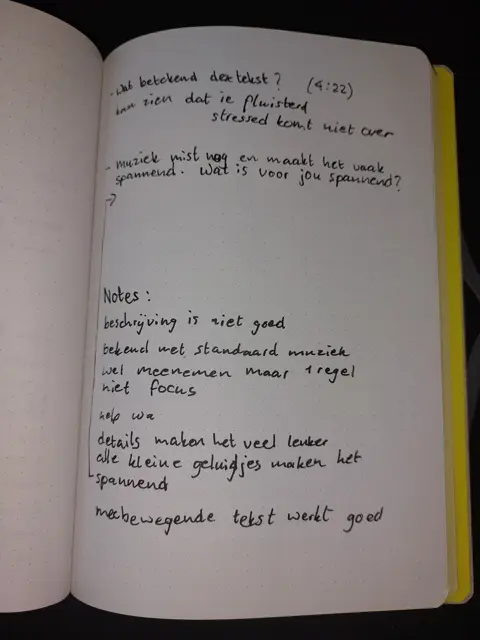 - wat betekend deze tekst? (4:22)
kan zien dat ie fluisterd
stressed komt niet over
- muziek mist nog en maakt het vaak
spannend. Wat is voor jou spannend?
→
Notes:
beschrijving is niet goed
bekend met standaard muziek
wel meenemen maar 1 regel
niet focus
help wa
details maken het veel leuker
alle kleine geluidjes maken het
spannend
meebewegende tekst werkt goed